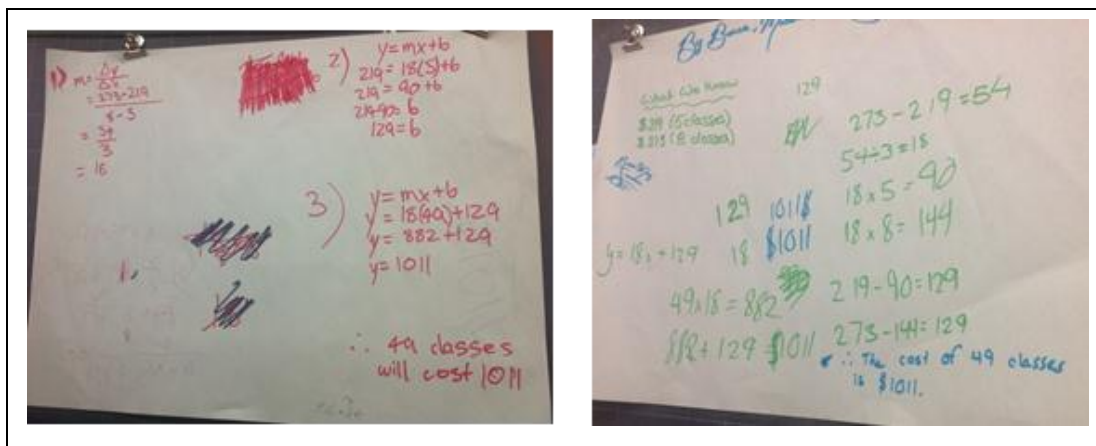 1) m = Δy
Δx
= 273-219
8-5
= 54
3
= 18
2) y=mx+b
219=18(5)+b
219=90+b
219-90=b
129=b
3) y=mx+b
y=18(49)+129
y=882+129
y=1011
∴ 49 classes
will cost 1011
By
What We Know
$219 (5 classes)
$273 (8 classes)
129
273-219=54
54÷3=18
18x5=90
18x8=144
129 1011$
y=18x+129 18 $1011
49x18=882
219-90=129
882+129 $1011
273-144=129
∴ The cost of 49 classes
is $1011.